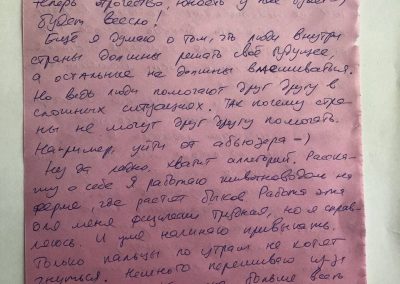 теперь отрочество, юность у нас будет)
будет весело!
Ещё я думаю о том, что люди внутри
страны должны решать своё будущее,
а остальные не должны вмешиваться.
Но ведь люди помогают друг другу в
сложных ситуациях. Так почему стра-
ны не могут друг другу помогать.
Например, уйти от абьюзера =)
Ну да ладно, хватит аллегорий. Расска-
жу о себе. Я работаю животноводом на
ферме, где растят быков. Работа эта
для меня физически трудная, но я справ-
ляюсь. И уже начинаю привыкать,
только пальцы по утрам не хотят
гнуться. Немного переживаю из-за
больше всего